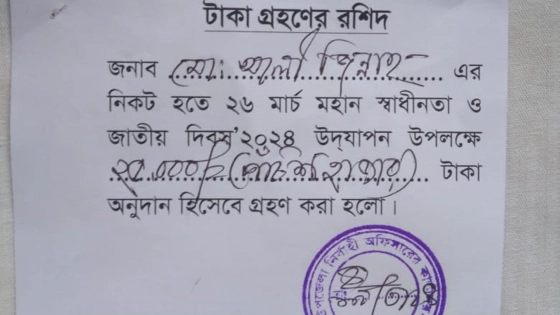 টাকা গ্রহণের রশিদ
জনাব মো: আলী জিন্নাহ এর
নিকট হতে ২৬ মার্চ মহান স্বাধীনতা ও
জাতীয় দিবস'২০২৪ উদ্‌যাপন উপলক্ষে
টাকা
অনুদান হিসেবে গ্রহণ করা হলো।
উপজেলা নির্বাহী অফিসারের